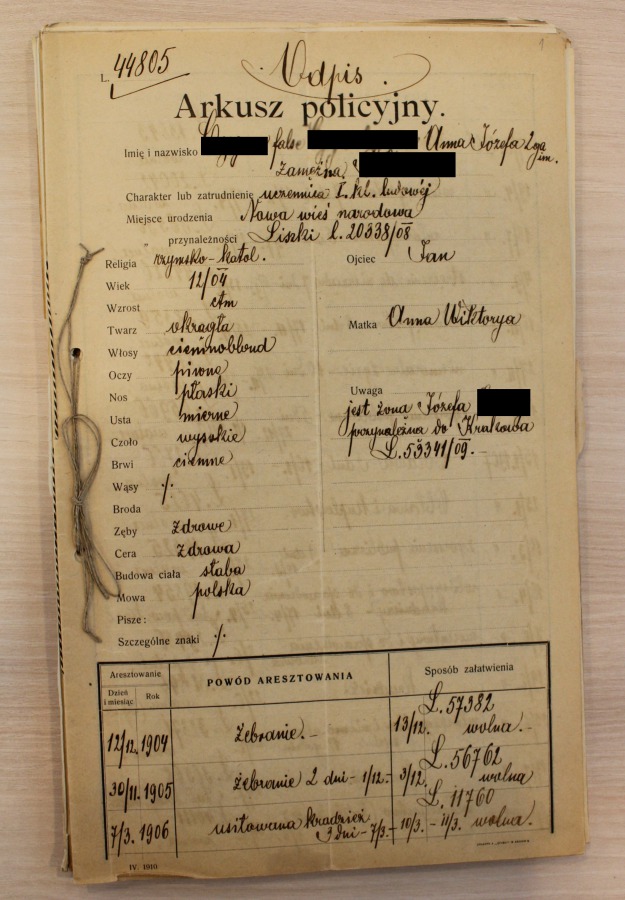 L. 44805
Odpis.
1
Arkusz policyjny.
Imię i nazwisko false Anna Józefa 2ga im.
zamężna
Charakter lub zatrudnienie uczennica I. kl. ludowéj
Miejsce urodzenia Nowa wieś narodowa
" przynależności Liszki L. 20338/08
Religia rzymsko-katol.
Ojciec Jan
Wiek 12/04
Wzrost ctm
Twarz okrągła
Matka Anna Wiktorya
Włosy ciemnoblond
Oczy piwne
Nos płaski
Uwaga
jest żona Józefa
Usta mierne
przynależna do Krakowa
Czoło wysokie
L. 53341/09.-
Brwi ciemne
Wąsy ·/·
Broda
Zęby zdrowe
Cera zdrowa
Budowa ciała słaba
Mowa polska
Pisze:
Szczególne znaki ·/·
Aresztowanie
Dzień i miesiąc
Rok
POWÓD ARESZTOWANIA
Sposób załatwienia
L. 57382
12/12. 1904 Żebranie.- 13/12. wolna.-
L. 56762
30/11. 1905 Żebranie 2 dni - 1/12.- 3/12. wolna
L. 11760
7/3. 1906 usiłowana kradzież
3 dni - 7/3.- 10/3. - 11/3. wolna.
IV. 1910.